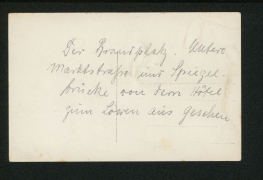 Der Brandplatz. Untere
Marktstraße und Spiegel-
brücke von dem Hôtel
zum Löwen aus gesehen